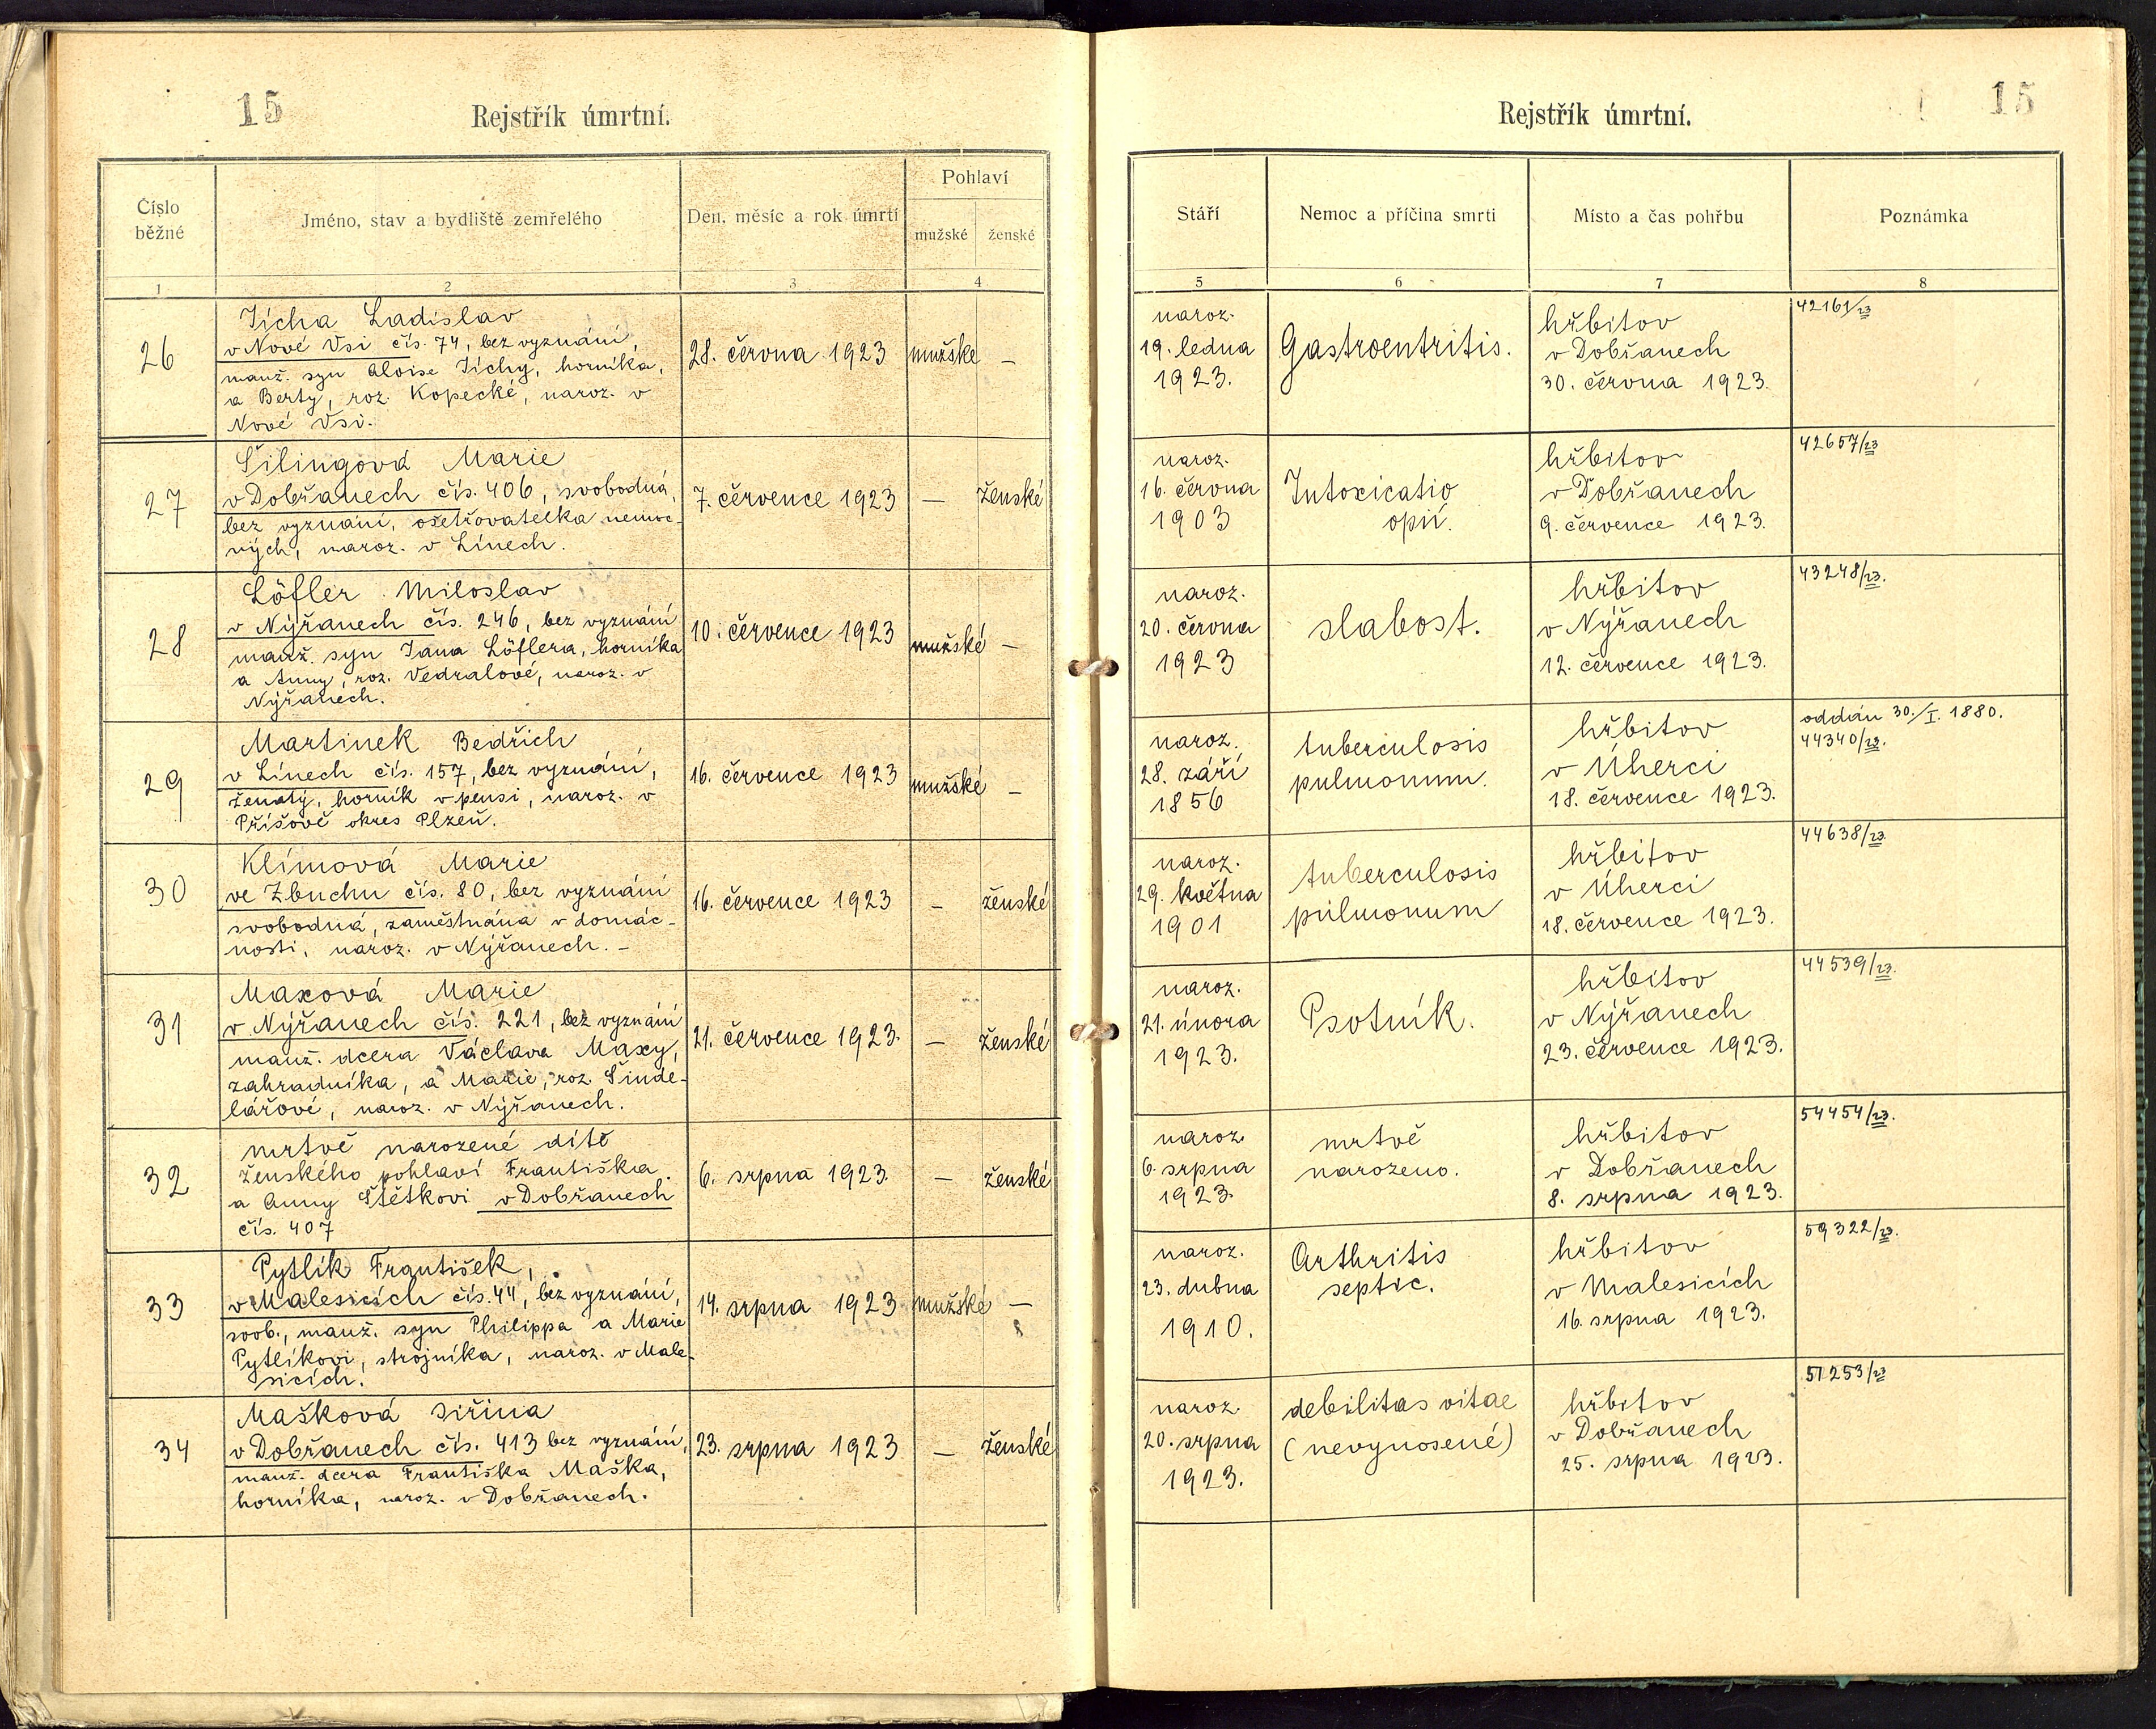 15
Rejstřík úmrtní.
Číslo běžné
Jméno, stav a bydliště zemřelého
Den, měsíc a rok úmrtí
Pohlaví
mužské
ženské
1
2
3
4
26
Jícha Ladislav
v Nové Vsi čís. 74, bez vyznání,
manž. syn Aloise Jíchy, horníka,
a Berty, roz. Kopecké, naroz. v
Nové Vsi.
28. června 1923
mužské
—
27
Šilingová Marie
v Dobřanech čís. 406, svobodná,
bez vyznání, ošetřovatelka nemoc-
ných, naroz. v Línech.
7. července 1923
—
ženské
28
Löfler Miloslav
v Nýřanech čís. 246, bez vyznání
manž. syn Jana Löflera, horníka
a Anny, roz. Vedralové, naroz. v
Nýřanech.
10. července 1923
mužské
—
29
Martinek Bedřich
v Línech čís. 157, bez vyznání,
ženatý, horník v pensi, naroz. v
Příšově okres Plzeň.
16. července 1923
mužské
—
30
Klímová Marie
ve Zbuchu čís. 80, bez vyznání
svobodná, zaměstnána v domác-
nosti, naroz. v Nýřanech. –
16. července 1923
—
ženské
31
Maxová Marie
v Nýřanech čís. 221, bez vyznání
manž. dcera Václava Maxy,
zahradníka, a Marie, roz. Šinde-
lářové, naroz. v Nýřanech.
21. července 1923.
—
ženské
32
mrtvě narozené dítě
ženského pohlaví Františka
a Anny Štětkovi v Dobřanech
čís. 407
6. srpna 1923.
—
ženské
33
Pytlík František,
v Malesicích čís. 44, bez vyznání,
svob., manž. syn Philippa a Marie
Pytlíkovi, strojníka, naroz. v Male-
sicích.
14. srpna 1923
mužské
—
34
Mašková Jiřina
v Dobřanech čís. 413 bez vyznání,
manž. dcera Františka Maška,
horníka, naroz. v Dobřanech.
23. srpna 1923
—
ženské
15
Rejstřík úmrtní.
Stáří
Nemoc a příčina smrti
Místo a čas pohřbu
Poznámka
5
6
7
8
naroz.
19. ledna
1923.
Gastroentritis.
hřbitov
v Dobřanech
30. června 1923.
42161/23
naroz.
16. června
1903
Intoxicatio
opii.
hřbitov
v Dobřanech
9. července 1923.
42657/23
naroz.
20. června
1923
slabost.
hřbitov
v Nýřanech
12. července 1923.
43248/23.
naroz.
28. září
1856
tuberculosis
pulmonum.
hřbitov
v Úherci
18. července 1923.
oddán 30./I. 1880.
44340/23.
naroz.
29. května
1901
tuberculosis
pulmonum
hřbitov
v Úherci
18. července 1923.
44638/23
naroz.
21. února
1923.
Psotník.
hřbitov
v Nýřanech
23. července 1923.
44539/23.
naroz.
6. srpna
1923.
mrtvě
narozeno.
hřbitov
v Dobřanech
8. srpna 1923.
54454/23.
naroz.
23. dubna
1910.
Arthritis
septic.
hřbitov
v Malesicích
16. srpna 1923.
59322/23.
naroz.
20. srpna
1923.
debilitas vitae
(nevynosené)
hřbitov
v Dobřanech
25. srpna 1923.
51253/23